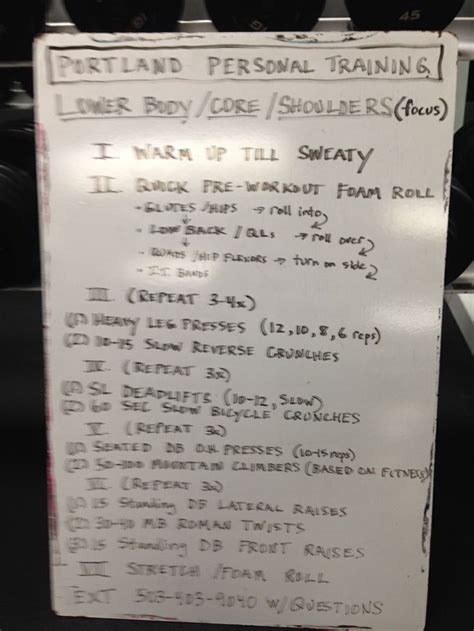 45
PORTLAND PERSONAL TRAINING
LOWER BODY/CORE/SHOULDERS (focus)
I. WARM UP TILL SWEATY
II. QUICK PRE-WORKOUT FOAM ROLL
- GLUTES/HIPS → roll into
- LOW BACK / QLs → roll over
- QUADS/HIP FLEXORS → turn on side
- I.T. BANDS
III. (REPEAT 3-4x)
(1) HEAVY LEG PRESSES (12, 10, 8, 6 reps)
(2) 10-15 SLOW REVERSE CRUNCHES
IV. (REPEAT 3x)
(1) SL DEADLIFTS (10-12, SLOW)
(2) 60 SEC SLOW BICYCLE CRUNCHES
V. (REPEAT 3x)
(1) SEATED DB O.H. PRESSES (10-15 reps)
(2) 50-100 MOUNTAIN CLIMBERS (BASED ON FITNESS)
VI. (REPEAT 3x)
(1) 15 Standing DB LATERAL RAISES
(2) 30-40 MB ROMAN TWISTS
(3) 15 Standing DB FRONT RAISES
VII STRETCH/FOAM ROLL
503-403-9040 W/QUESTIONS